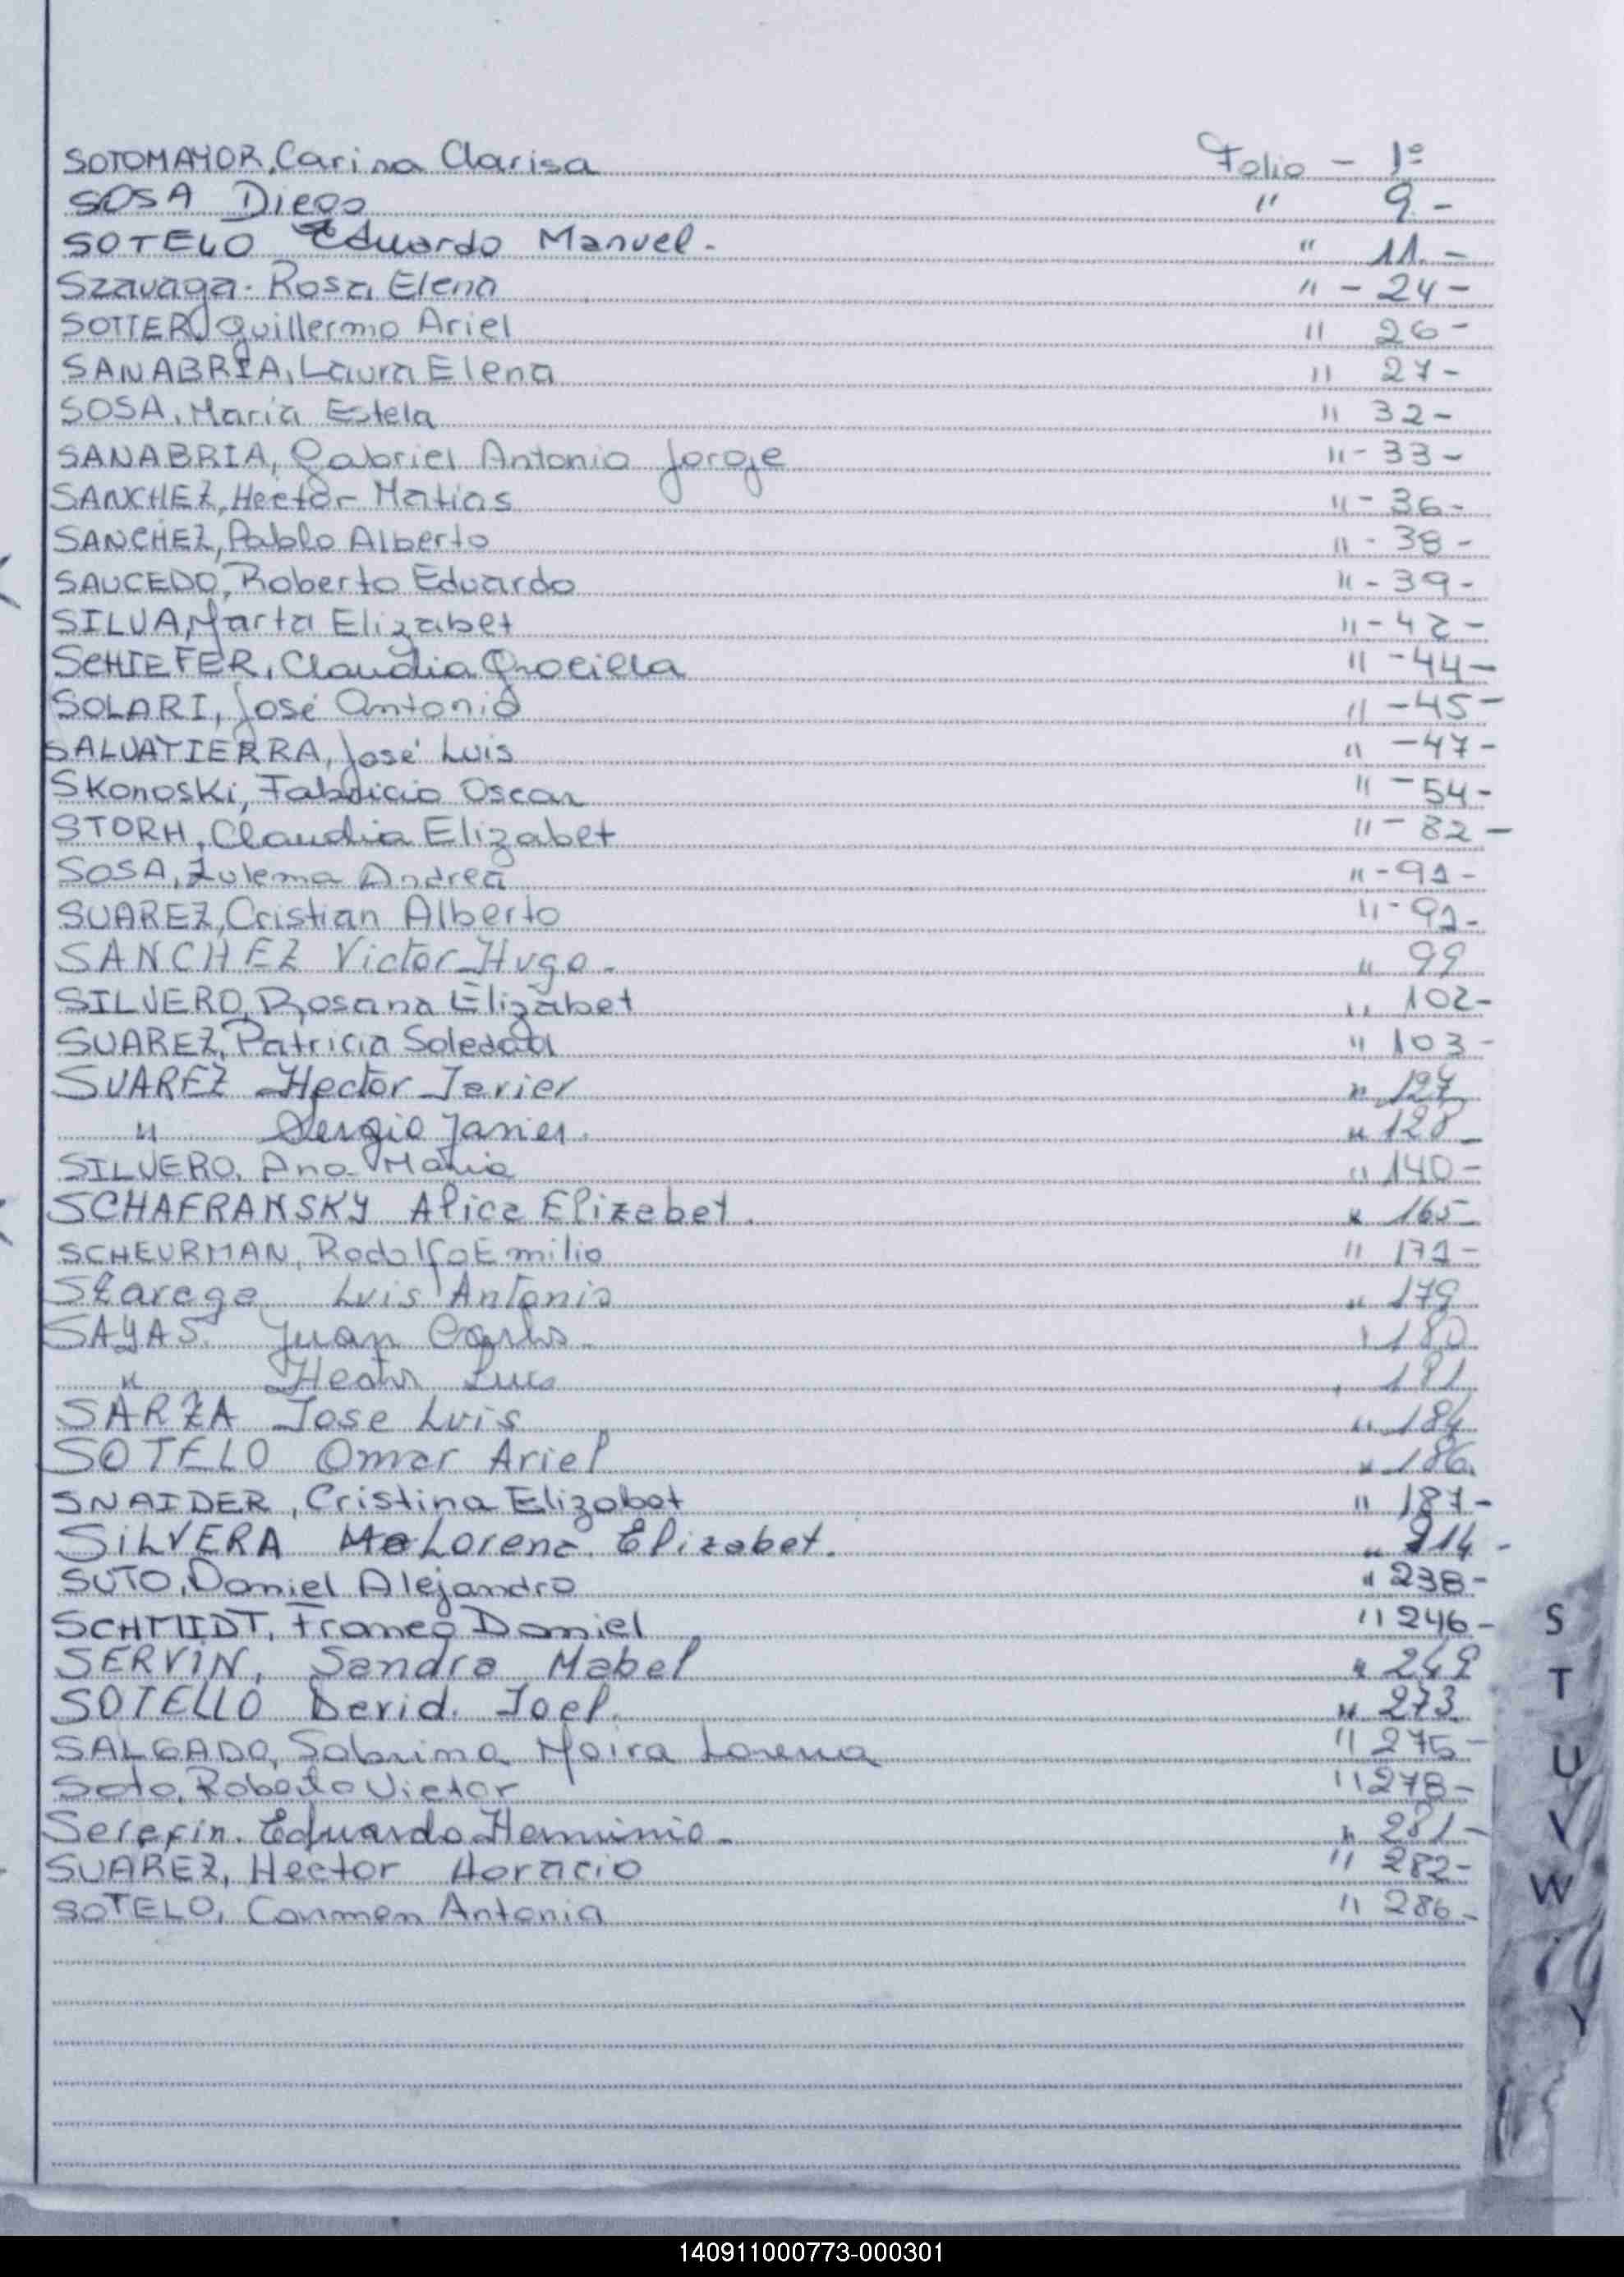 SOTOMAYOR, Carina Clarisa Folio - 1º
SOSA Diego " 9 -
SOTELO Eduardo Manuel - " 11. -
Szavaga - Rosa Elena " - 24 -
SOTTER, Guillermo Ariel " 26 -
SANABRIA, Laura Elena " 27 -
SOSA, Maria Estela " 32 -
SANABRIA, Gabriel Antonio Jorge " - 33 -
SANCHEZ, Hector Matias " - 36 -
SANCHEZ, Pablo Alberto " - 38 -
SAUCEDO, Roberto Eduardo " - 39 -
SILVA, Marta Elizabet " - 42 -
SCHIEFER, Claudia " - 44 -
SOLARI, José Antonio " - 45 -
SALVATIERRA, José Luis " - 47 -
Skonoski, Fabricio Oscar " - 54 -
STORH, Claudia Elizabet " - 82 -
SOSA, Zulema Andrea " - 91 -
SUAREZ, Cristian Alberto " - 92 -
SANCHEZ Victor Hugo - " 99
SILVERO, Rosana Elizabet " 102 -
SUAREZ, Patricia Soledad " 103 -
SUAREZ Hector Javier " 127
" Sergio Javier. " 128 -
SILVERO, Ana Maria " 140 -
SCHAFRANSKY Alice Elizabet. " 165 -
SCHEURMAN, Rodolfo Emilio " 171 -
Luis Antonio " 179
SAYAS. Juan Carlos - " 180
" Hector Luis " 181
SARZA Jose Luis " 184
SOTELO Omar Ariel " 186
SNAIDER, Cristina Elizabet " 187 -
SILVERA Ma Lorena Elizabet. " 214 -
SUTO, Daniel Alejandro " 238 -
SCHMIDT, Franco Daniel " 246 -
SERVIN, Sandra Mabel " 249
SOTELLO David Joel. " 273
SALGADO, Sabrina Moira Lorena " 275 -
Soto, Roberto Victor " 278 -
Serefin. Eduardo Herminio - " 281 -
SUAREZ, Hector Horacio " 282 -
SOTELO, Carmen Antonia " 286 -
S
T
U
V
W
Y
140911000773-000301